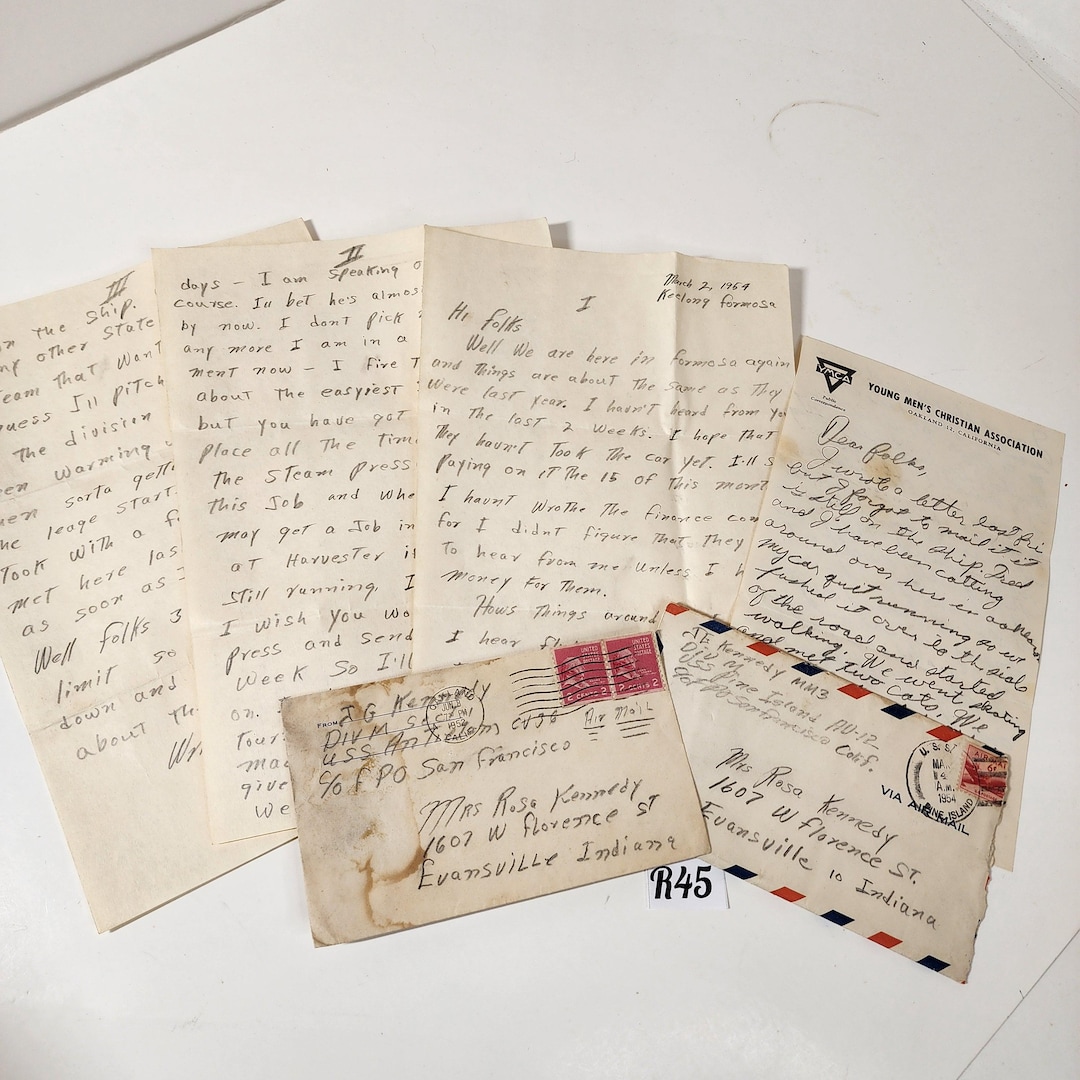 III
on the ship.
any other state
team that want
guess I'll pitch
the division
been warming
men sorta gett
he leage start.
Took with a f
met here las
as soon as I
Well folks 3
limit so
down and
about th
Wr
II
days - I am speaking o
course. Ill bet he's almos
by now. I dont pick
any more I am in a
ment now - I fire T
about the easyiest
but you have got
place all the time
the steam press
this Job and whe
may get a Job in
at Harvester i
still running, I
I wish you wo
press and send
week so I'll
on. I
Tour
ma
give
we
March 2, 1954
Keelong formosa
I
Hi folks
Well we are here in formosa again
and things are about the same as they
were last year. I hadn't heard from yo
in the last 2 weeks. I hope that
they havnt took the car yet. I'll s
paying on it the 15 of this mont
I haunt wrothe the finance com
for I didnt figure that they
to hear from me unless I h
money for them.
Hows things around
I hear
YMCA
Public
Correspondence
YOUNG MEN'S CHRISTIAN ASSOCIATION
OAKLAND 12, CALIFORNIA
Dear folks,
I wrote a letter last fri
but I forgot to mail it it
is still on the ship. Fred
and I have been catting
around over here in
my car quit running so we
pushed it over to the side
of the road and started
walking. We went skating
and met two cats, We
FROM
J G Kennedy
Div M
USS Antietam CV36
c/o FPO San Francisco
JUN 8
1952
CALIF
UNITED STATES POSTAGE
2 CENTS 2
UNITED STATES POSTAGE
2 CENTS 2
Air Mail
Mrs Rosa Kennedy
1607 W florence ST
Evansville Indiana
R45
Kennedy MM3
Div M
USS Pine Island AV-12
c/o FPO San Francisco Calif.
U.S.S.
MAR
4
A.M.
1954
PINE ISLAND
AIR MAIL
6¢
VIA AIR MAIL
Mrs Rosa Kennedy
1607 W florence ST.
Evansville 10 Indiana